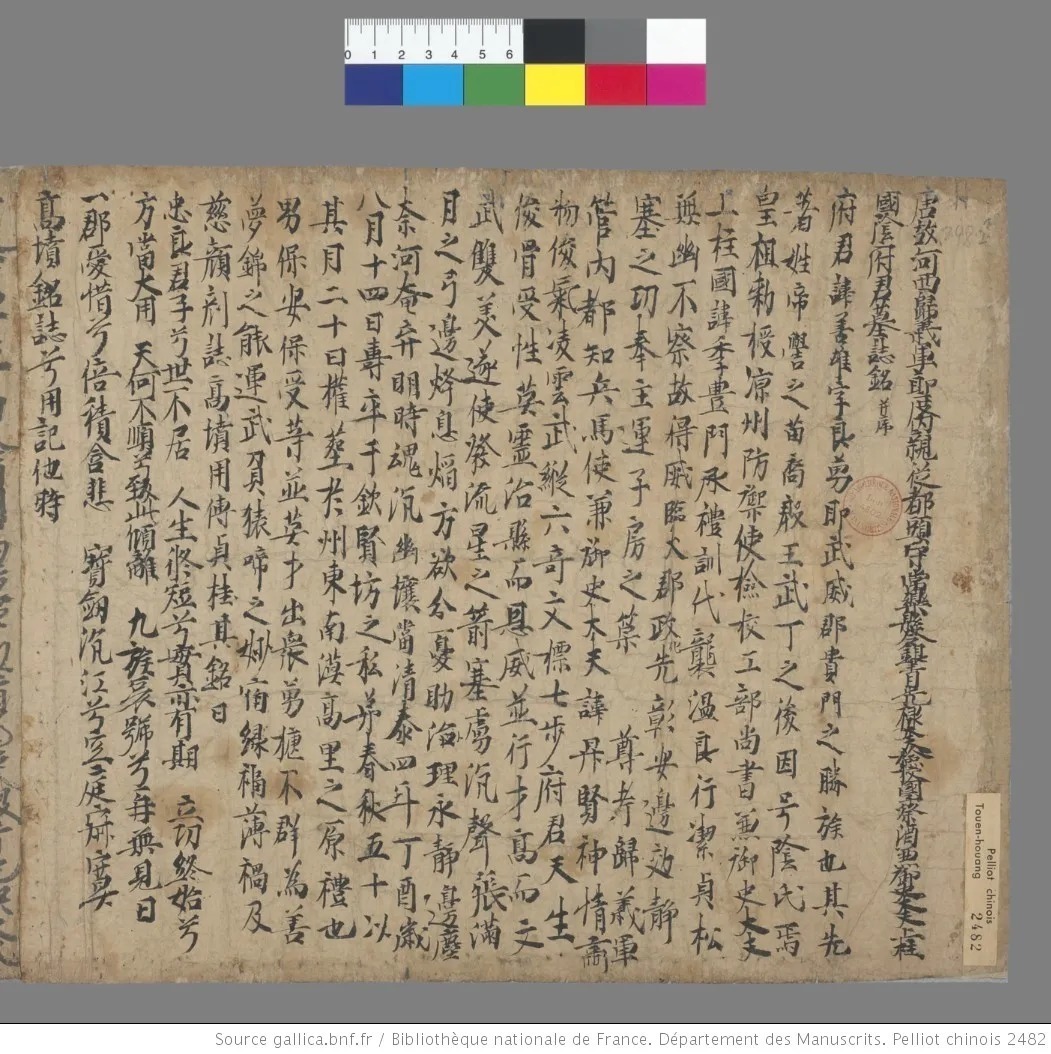 唐故河西歸義軍節度內親從都頭守常樂縣令銀青光祿大夫檢校國子祭酒兼御史大夫上柱
國陰府君墓誌銘并序
府君諱善雄字良勇即武威郡貴門之勝族也其先
著姓帝嚳之苗裔殷王武丁之後因号陰氏焉
皇祖勑授涼州防禦使檢校工部尚書兼御史大夫
上柱國諱季豐門承禮訓代襲溫良行潔貞松
無幽不察故得威臨大郡政先彰安邊効靜
塞之功奉主運子房之策 尊考歸義軍
管內都知兵馬使兼御史大夫諱昇賢神情
物俊氣凌雲武縱六奇文標七步府君天生
俊骨受性英靈治縣而恩威並行才高而文
武雙美遂使發流星之箭塞虜沉聲張滿
月之弓邊烽息焰方欲分憂助治理永靜邊塵
奈何奄弃明時魂沉幽壤當清泰四年丁酉歲
八月十四日壽卒于欽賢坊之私弟春秋五十以
其月二十日權葬於州東南漠高里之原禮也
男保安保受等並英才出衆勇揔不群為善
夢錦之能運武負猿啼之妙宿緣福薄禍及
慈顏剋誌高墳用傳貞桂其銘曰
忠良君子兮世不居 人生脩短兮實亦有期 立功終始兮
方當大用 天何不順兮致此傾離 九族哀號兮再無見日
一郡愛惜兮倍積含悲 寶劒沉江兮
高墳銘誌兮用記他時
0 1 2 3 4 5 6
Pelliot chinois
Touen-houang 2482
Source gallica.bnf.fr / Bibliothèque nationale de France. Département des Manuscrits. Pelliot chinois 2482